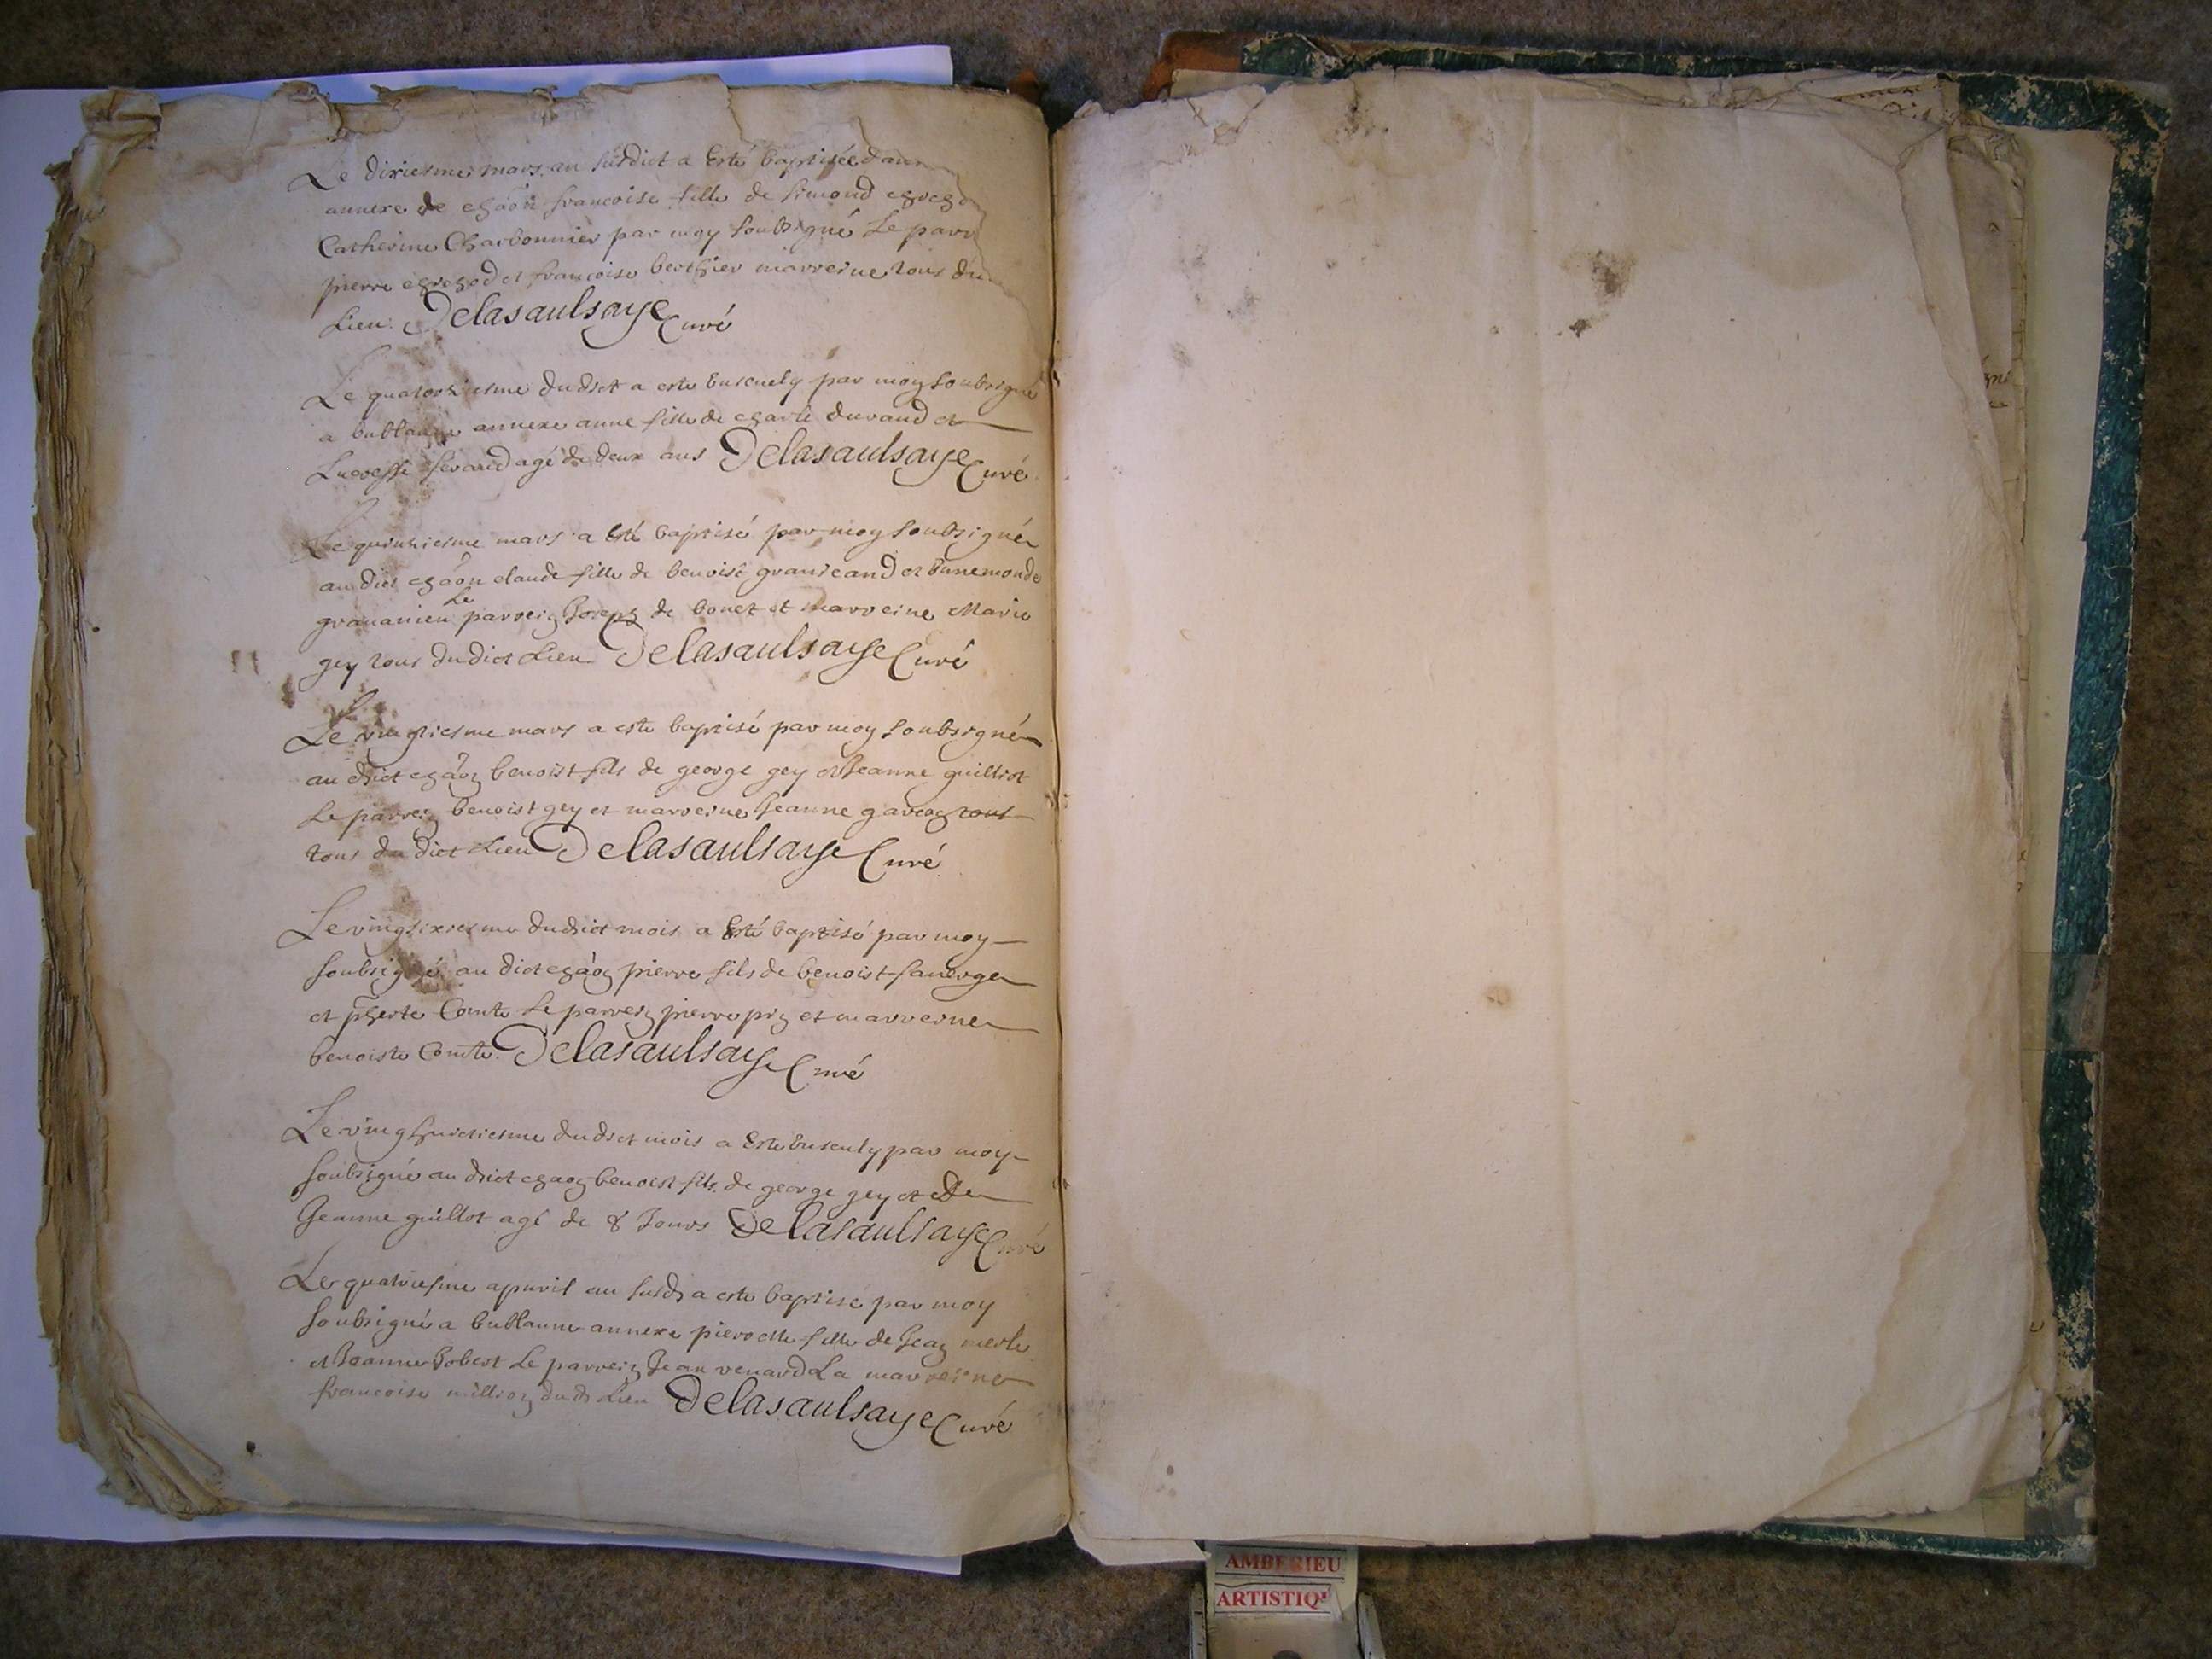 Le dixiesme mars an susdict a esté baptisée dans
annexe de chaon francoise fille de simond
Catherine Charbonnier par moy soubsigné Le parr
pierre et francoise berthier marreine tous du
Lieu. Delasaulsaye Curé
Le quatorziesme dudict a esté ensevely par moy soubsigné
a bublanne annexe anne fille de charle durand et
Lucresse agé de deux ans Delasaulsaye Curé
Le quinziesme mars a esté baptisé par moy soubsigné
au dict chaon claude fille de benoist grandeand et Ennemonde
Le
parrein Joseph de bonet et marreine Marie
gey tous dudict Lieu Delasaulsaye Curé
Le vingtiesme mars a esté baptisé par moy soubsigné
au dict chaon benoist fils de george gey et Jeanne guilliot
Le parrein benoist gey et marreine Jeanne tous
tous du dict Lieu Delasaulsaye Curé
Le vingsixiesme dudict mois a esté baptisé par moy
soubsigné au dict chaon pierre fils de benoist faverge
et Comte Le parrein pierre et marreine
benoiste Comte. Delasaulsaye Curé
Le vinghuictiesme dudict mois a esté ensevely par moy
soubsigné au dict chaon benoist fils de george gey et de
Jeanne guillot agé de 8 Jours Delasaulsaye Curé
Le quatriesme apuril an susd a esté baptisé par moy
soubsigné a bublanne annexe pierrette fille de Jean merle
et Jeanne Robert Le parrein Jean renard La marreine
francoise million dud Lieu Delasaulsaye Curé
AMBERIEU
ARTISTIQ